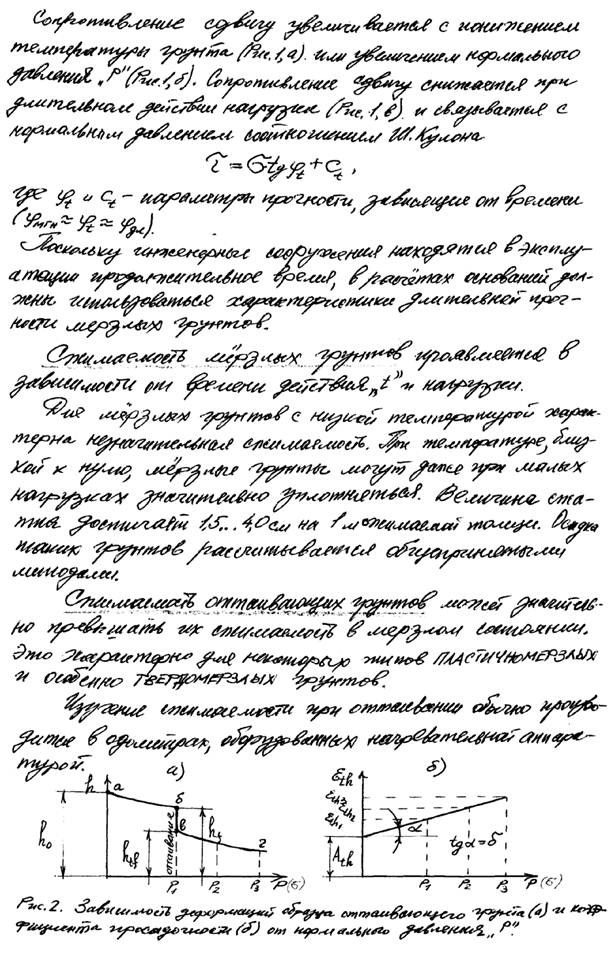 Сопротивление сдвигу увеличивается с понижением
температуры грунта (Рис.1,а) или увеличением нормального
давления „Р" (Рис.1,б). Сопротивление сдвигу снижается при
длительном действии нагрузки (Рис.1,в) и связывается с
нормальным давлением соотношением Ш.Кулона
τ = σ·tgφt + Ct,
где φt и Ct – параметры прочности, зависящие от времени
(φмгн ≈ φt ≈ φдл).
Поскольку инженерные сооружения находятся в эксплу-
атации продолжительное время, в расчётах оснований дол-
жны использоваться характеристики длительной проч-
ности мерзлых грунтов.
Сжимаемость мёрзлых грунтов проявляется в
зависимости от времени действия „t" и нагрузки.
Для мёрзлых грунтов с низкой температурой харак-
терна незначительная сжимаемость. При температуре, близ-
кой к нулю, мёрзлые грунты могут даже при малых
нагрузках значительно уплотняться. Величина сжа-
тия достигает 1.5...4,0 см на 1 м сжимаемой толщи. Осадка
таких грунтов рассчитывается общепринятыми
методами.
Сжимаемость оттаивающих грунтов может значитель-
но превышать их сжимаемость в мерзлом состоянии.
Это характерно для некоторых типов ПЛАСТИЧНОМЕРЗЛЫХ
и особенно ТВЕРДОМЕРЗЛЫХ грунтов.
Изучение сжимаемости при оттаивании обычно произво-
дится в одометрах, оборудованных нагревательной аппара-
турой.
а) б)
h a б в 2
h0 hth hi
оттаивание
P1 P2 P3 P(σ)
εth
εth3 εth2
εth1
α tgα=δ
Ath
P1 P2 P3 P(σ)
Рис.2. Зависимость деформаций образца оттаивающего грунта (а) и коэф-
фициента просадочности (б) от нормального давления „P".